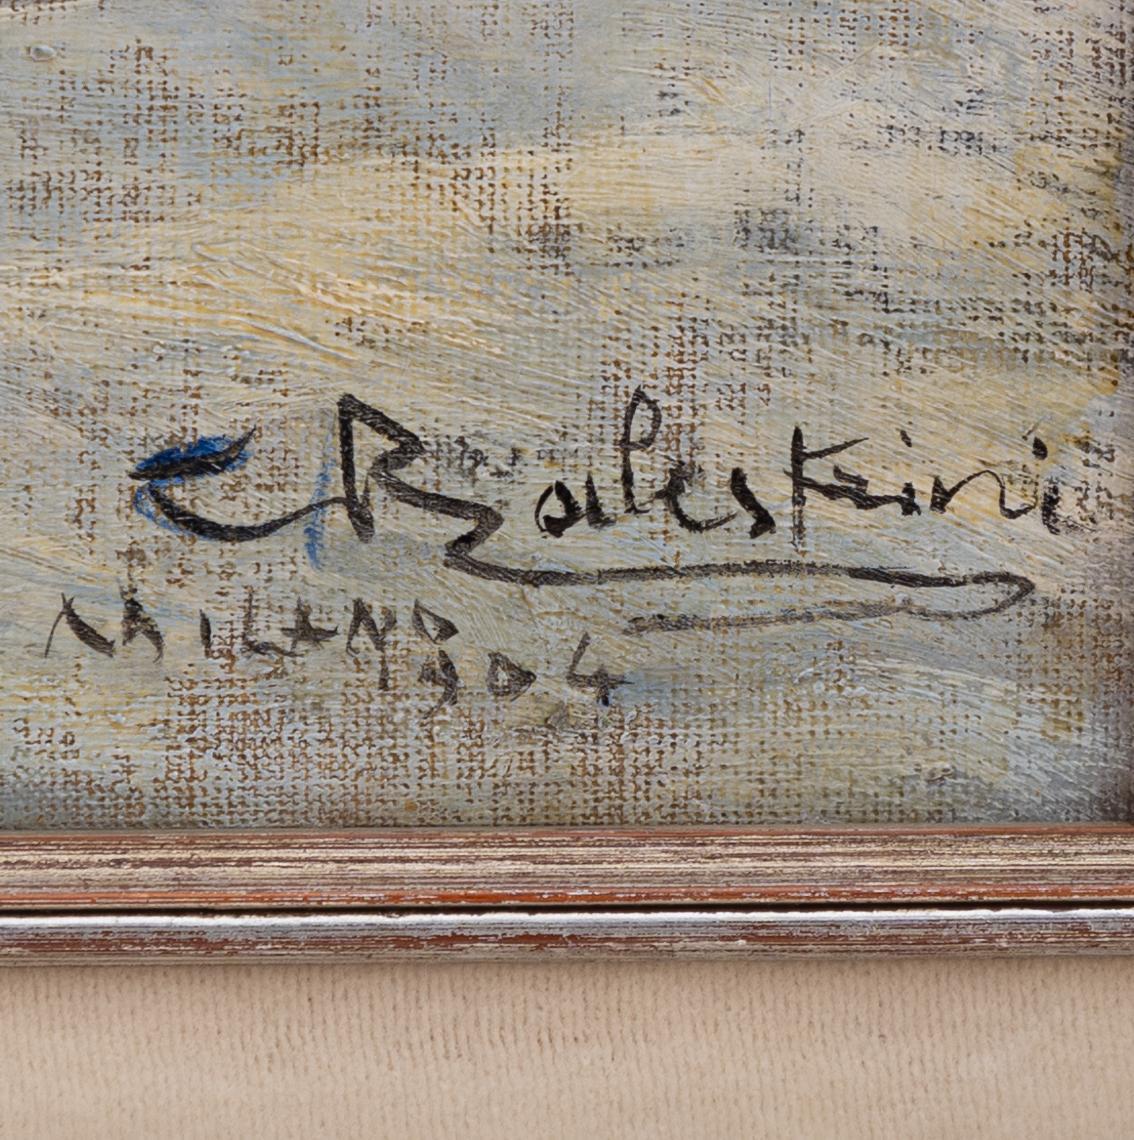 C Balestrini
MILANO
904